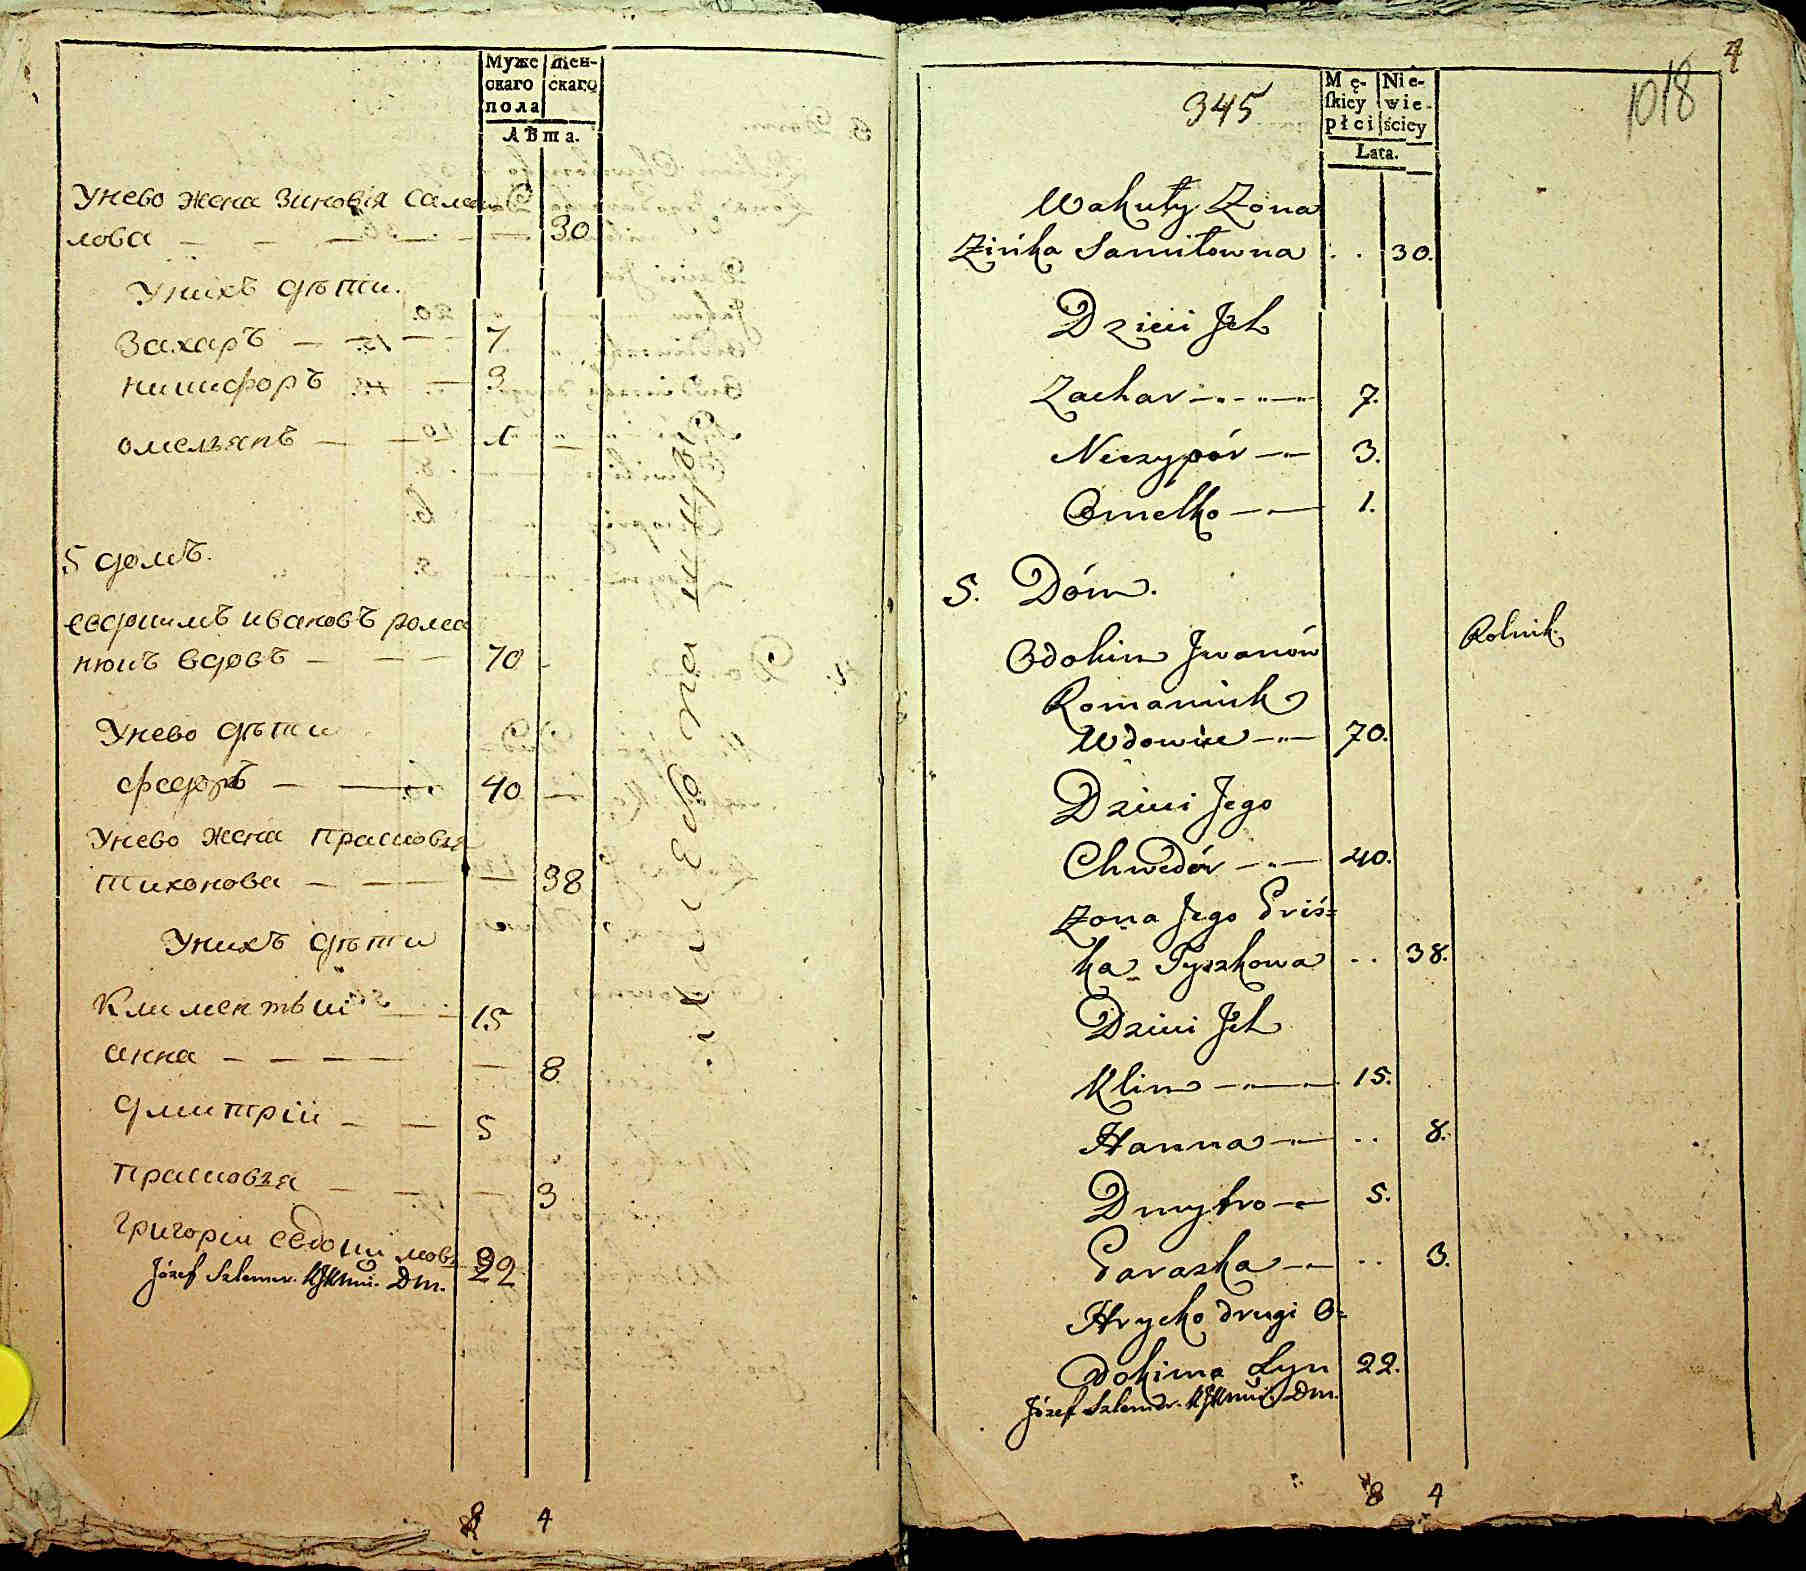 Муже
скаго
пола
Жен-
скаго
Лѣта.
Унево жена Зиновія Самои
лова — — — — — 30
Унихъ дѣти.
Захаръ — — — 7
никифоръ — 3
омельянъ — — 1
5 домъ.
евдокимъ ивановъ рома
нюкъ вдовъ — — — 70
Унево дѣти
федоръ — — 40
Унево жена прасковья
тихонова — — — 38
Унихъ дѣти
Климентьи — — 15
анна — — — — — 8
дмитріи — — 5
прасковья — — — 3
григории евдокимовъ 22
Józef Szlemer. Dm.
8 4
345
1018
4
Mę-
skiey
płci
Nie-
wie-
ściey
Lata.
Wakuły Zona
Zińka Samiłowna . . 30.
Dzieci Jch
Zachar — 7.
Niczypór — 3.
Omelko — 1.
5. Dóm.
Odokim Jwanów
Rolnik.
Romaniuk
Wdowiec — 70.
Dzieci Jego
Chwedór — 40.
Zona Jego Priś=
ka Tyszkowa . . 38.
Dzieci Jch
Klim — 15.
Hanna — . . 8.
Dmytro — 5.
Paraska — . . 3.
Hrycko drugi O=
dokima Syn 22.
Józef Szlemer. Dm.
8 4